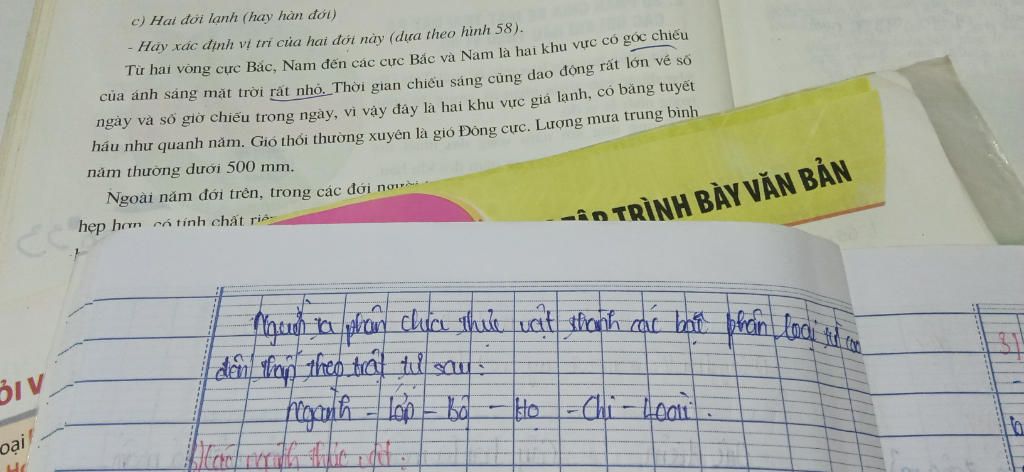 c) Hai đới lạnh (hay hàn đới)
- Hãy xác định vị trí của hai đới này (dựa theo hình 58).
Từ hai vòng cực Bắc, Nam đến các cực Bắc và Nam là hai khu vực có góc chiếu
của ánh sáng mặt trời rất nhỏ. Thời gian chiếu sáng cũng dao động rất lớn về số
ngày và số giờ chiếu trong ngày, vì vậy đây là hai khu vực giá lạnh, có băng tuyết
hầu như quanh năm. Gió thổi thường xuyên là gió Đông cực. Lượng mưa trung bình
năm thường dưới 500 mm.
Ngoài năm đới trên, trong các đới
hẹp hơn, có tính chất
TRÌNH BÀY VĂN BẢN
Người ta phân chia thực vật thành các bậc phân loại từ cao
đến thấp theo trật tự sau:
Ngành - Lớp - Bộ - Họ - Chi - Loài.
Các ngành thực vật: